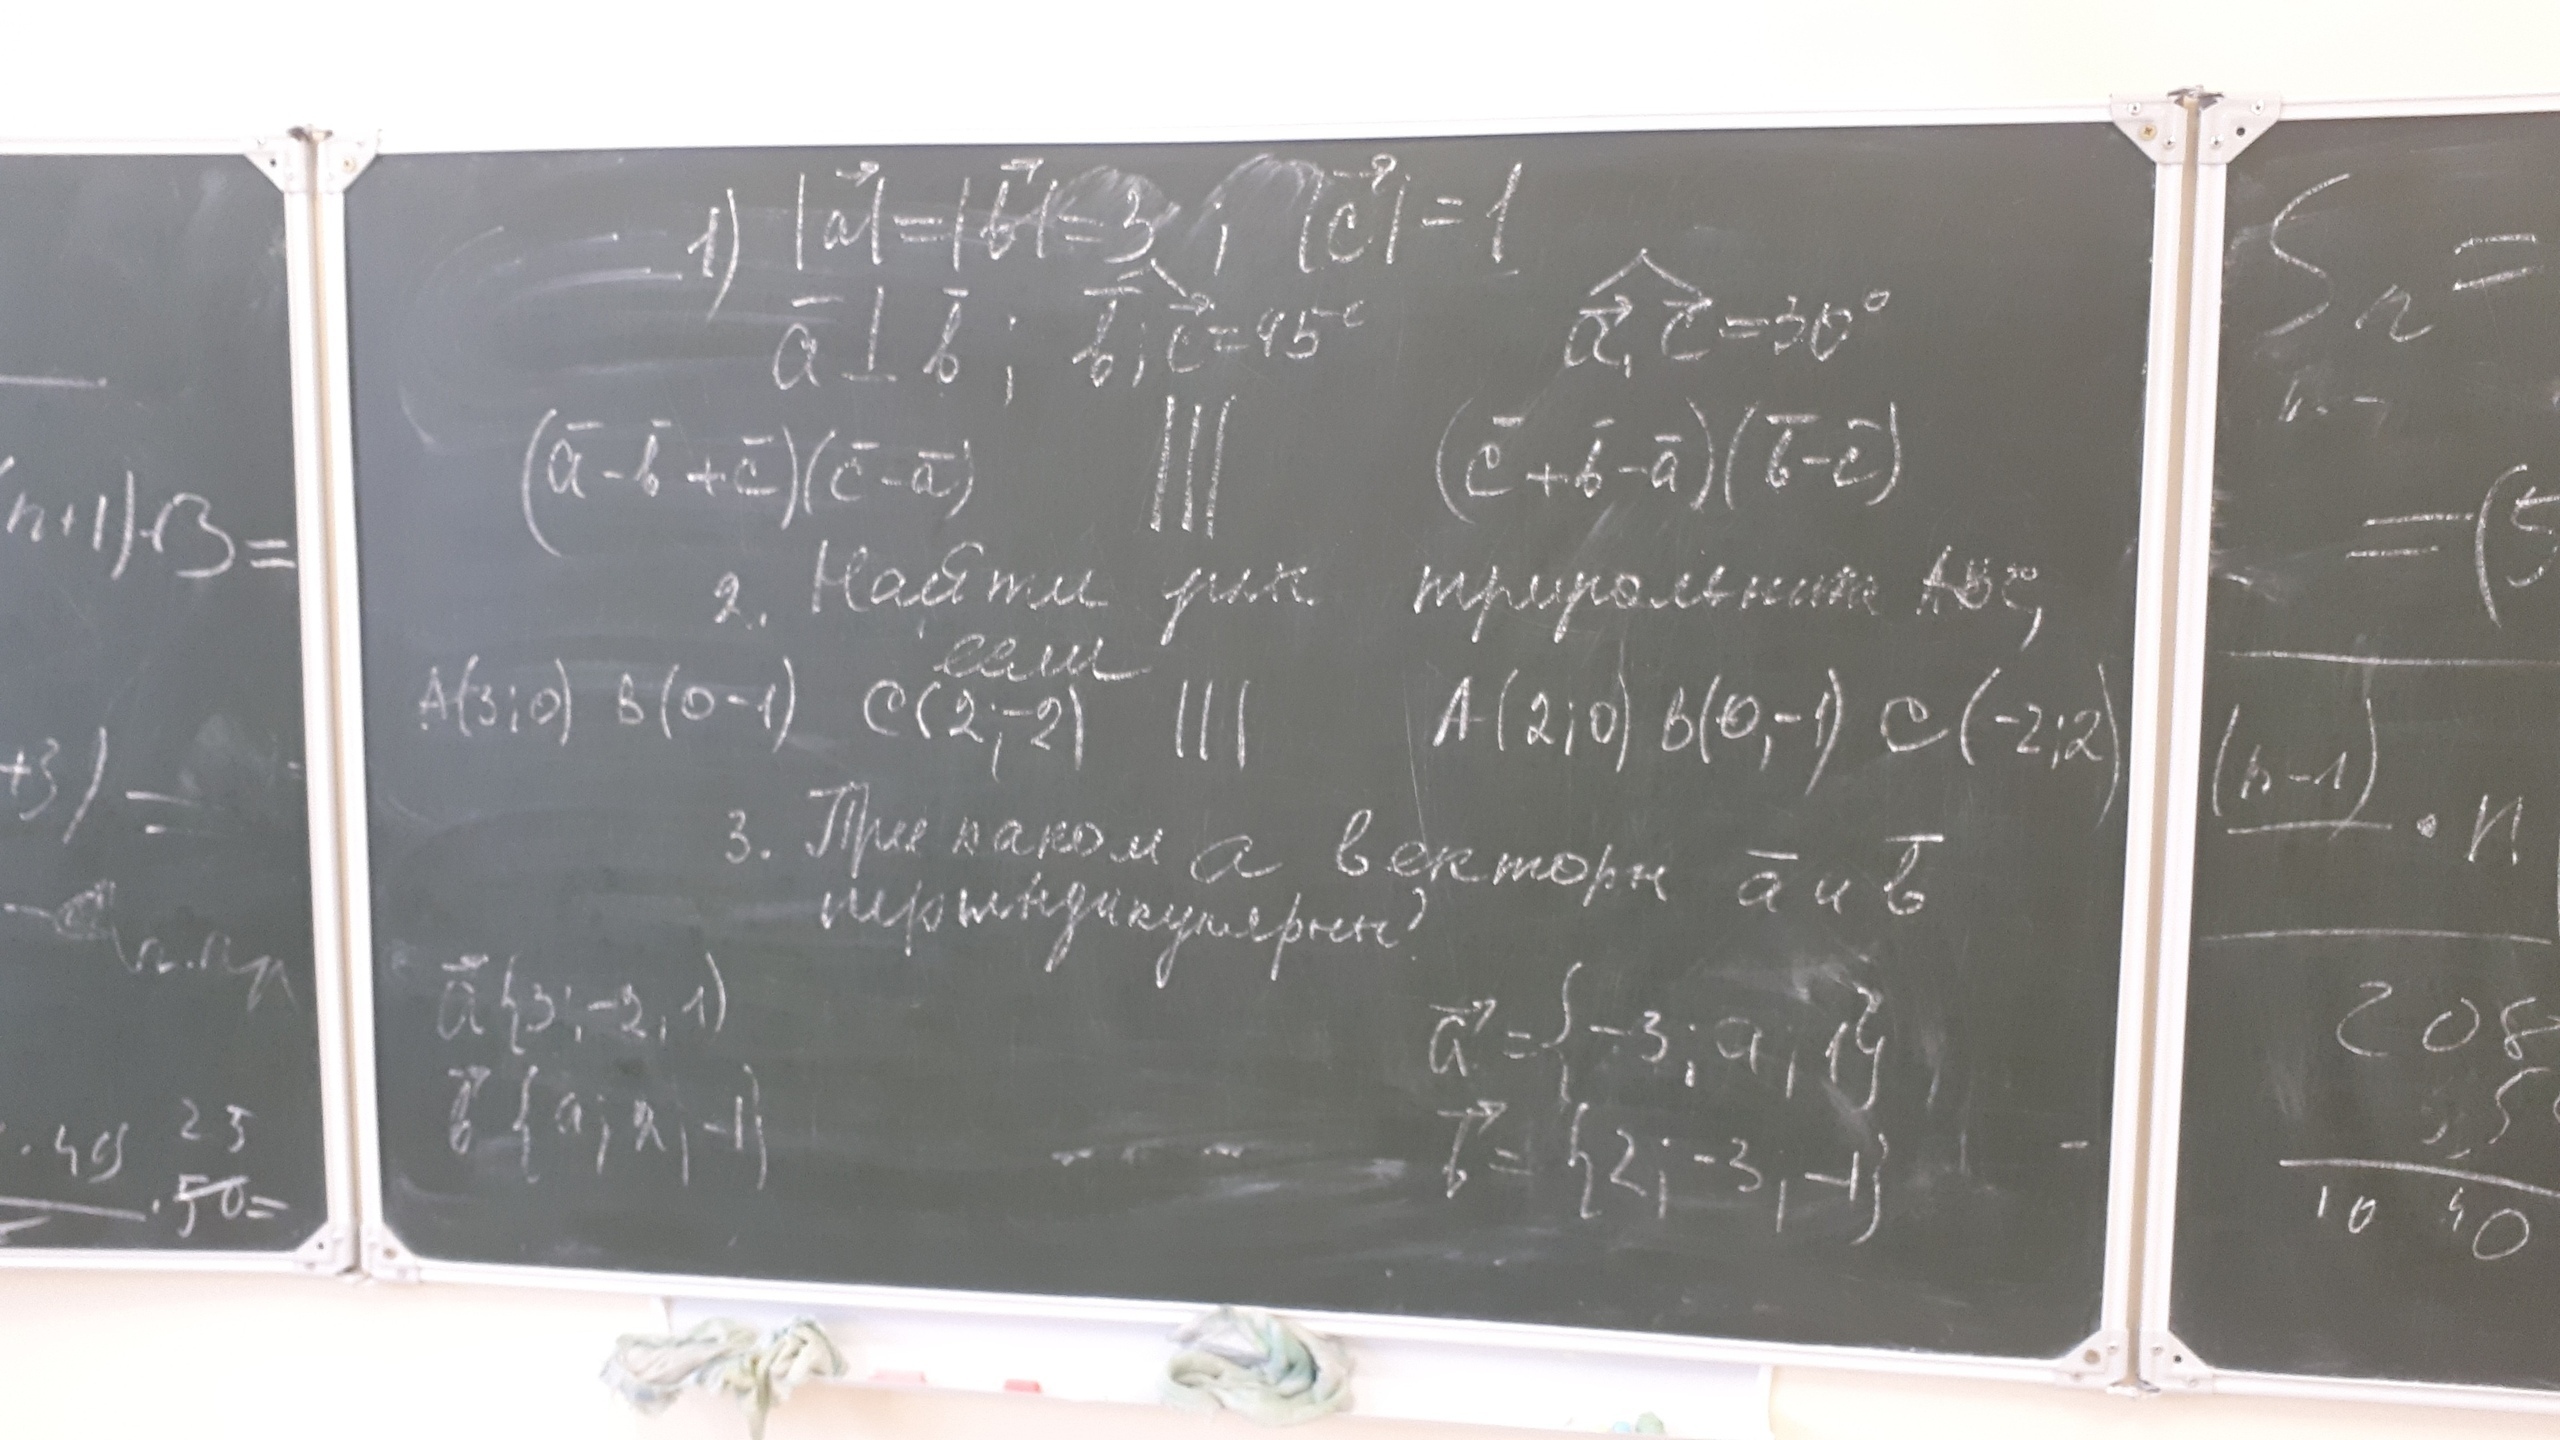 (n+1)·3=
+3) =
· 49 25
· 50=
1) |a⃗|=|b⃗|=3 ; |c⃗|=1
a̅ ⊥ b̅ ; b̅; c⃗=45° a⃗, c⃗=30°
(a̅-b̅+c̅)(c̅-a̅) ||| (c̅+b̅-a̅)(b̅-c̅)
2. Найти треугольника ABC,
если
A(3;0) B(0-1) C(2;-2) ||| A(2;0) B(0,-1) C(-2;2)
3. При каком a векторы a̅ и b̅
перпендикулярны?
a⃗{3;-2,1) a⃗={-3;a;1},
b⃗{a;2,-1} b⃗={2;-3,-1}
Sn =
=(5
(n-1) · n
208
10 40